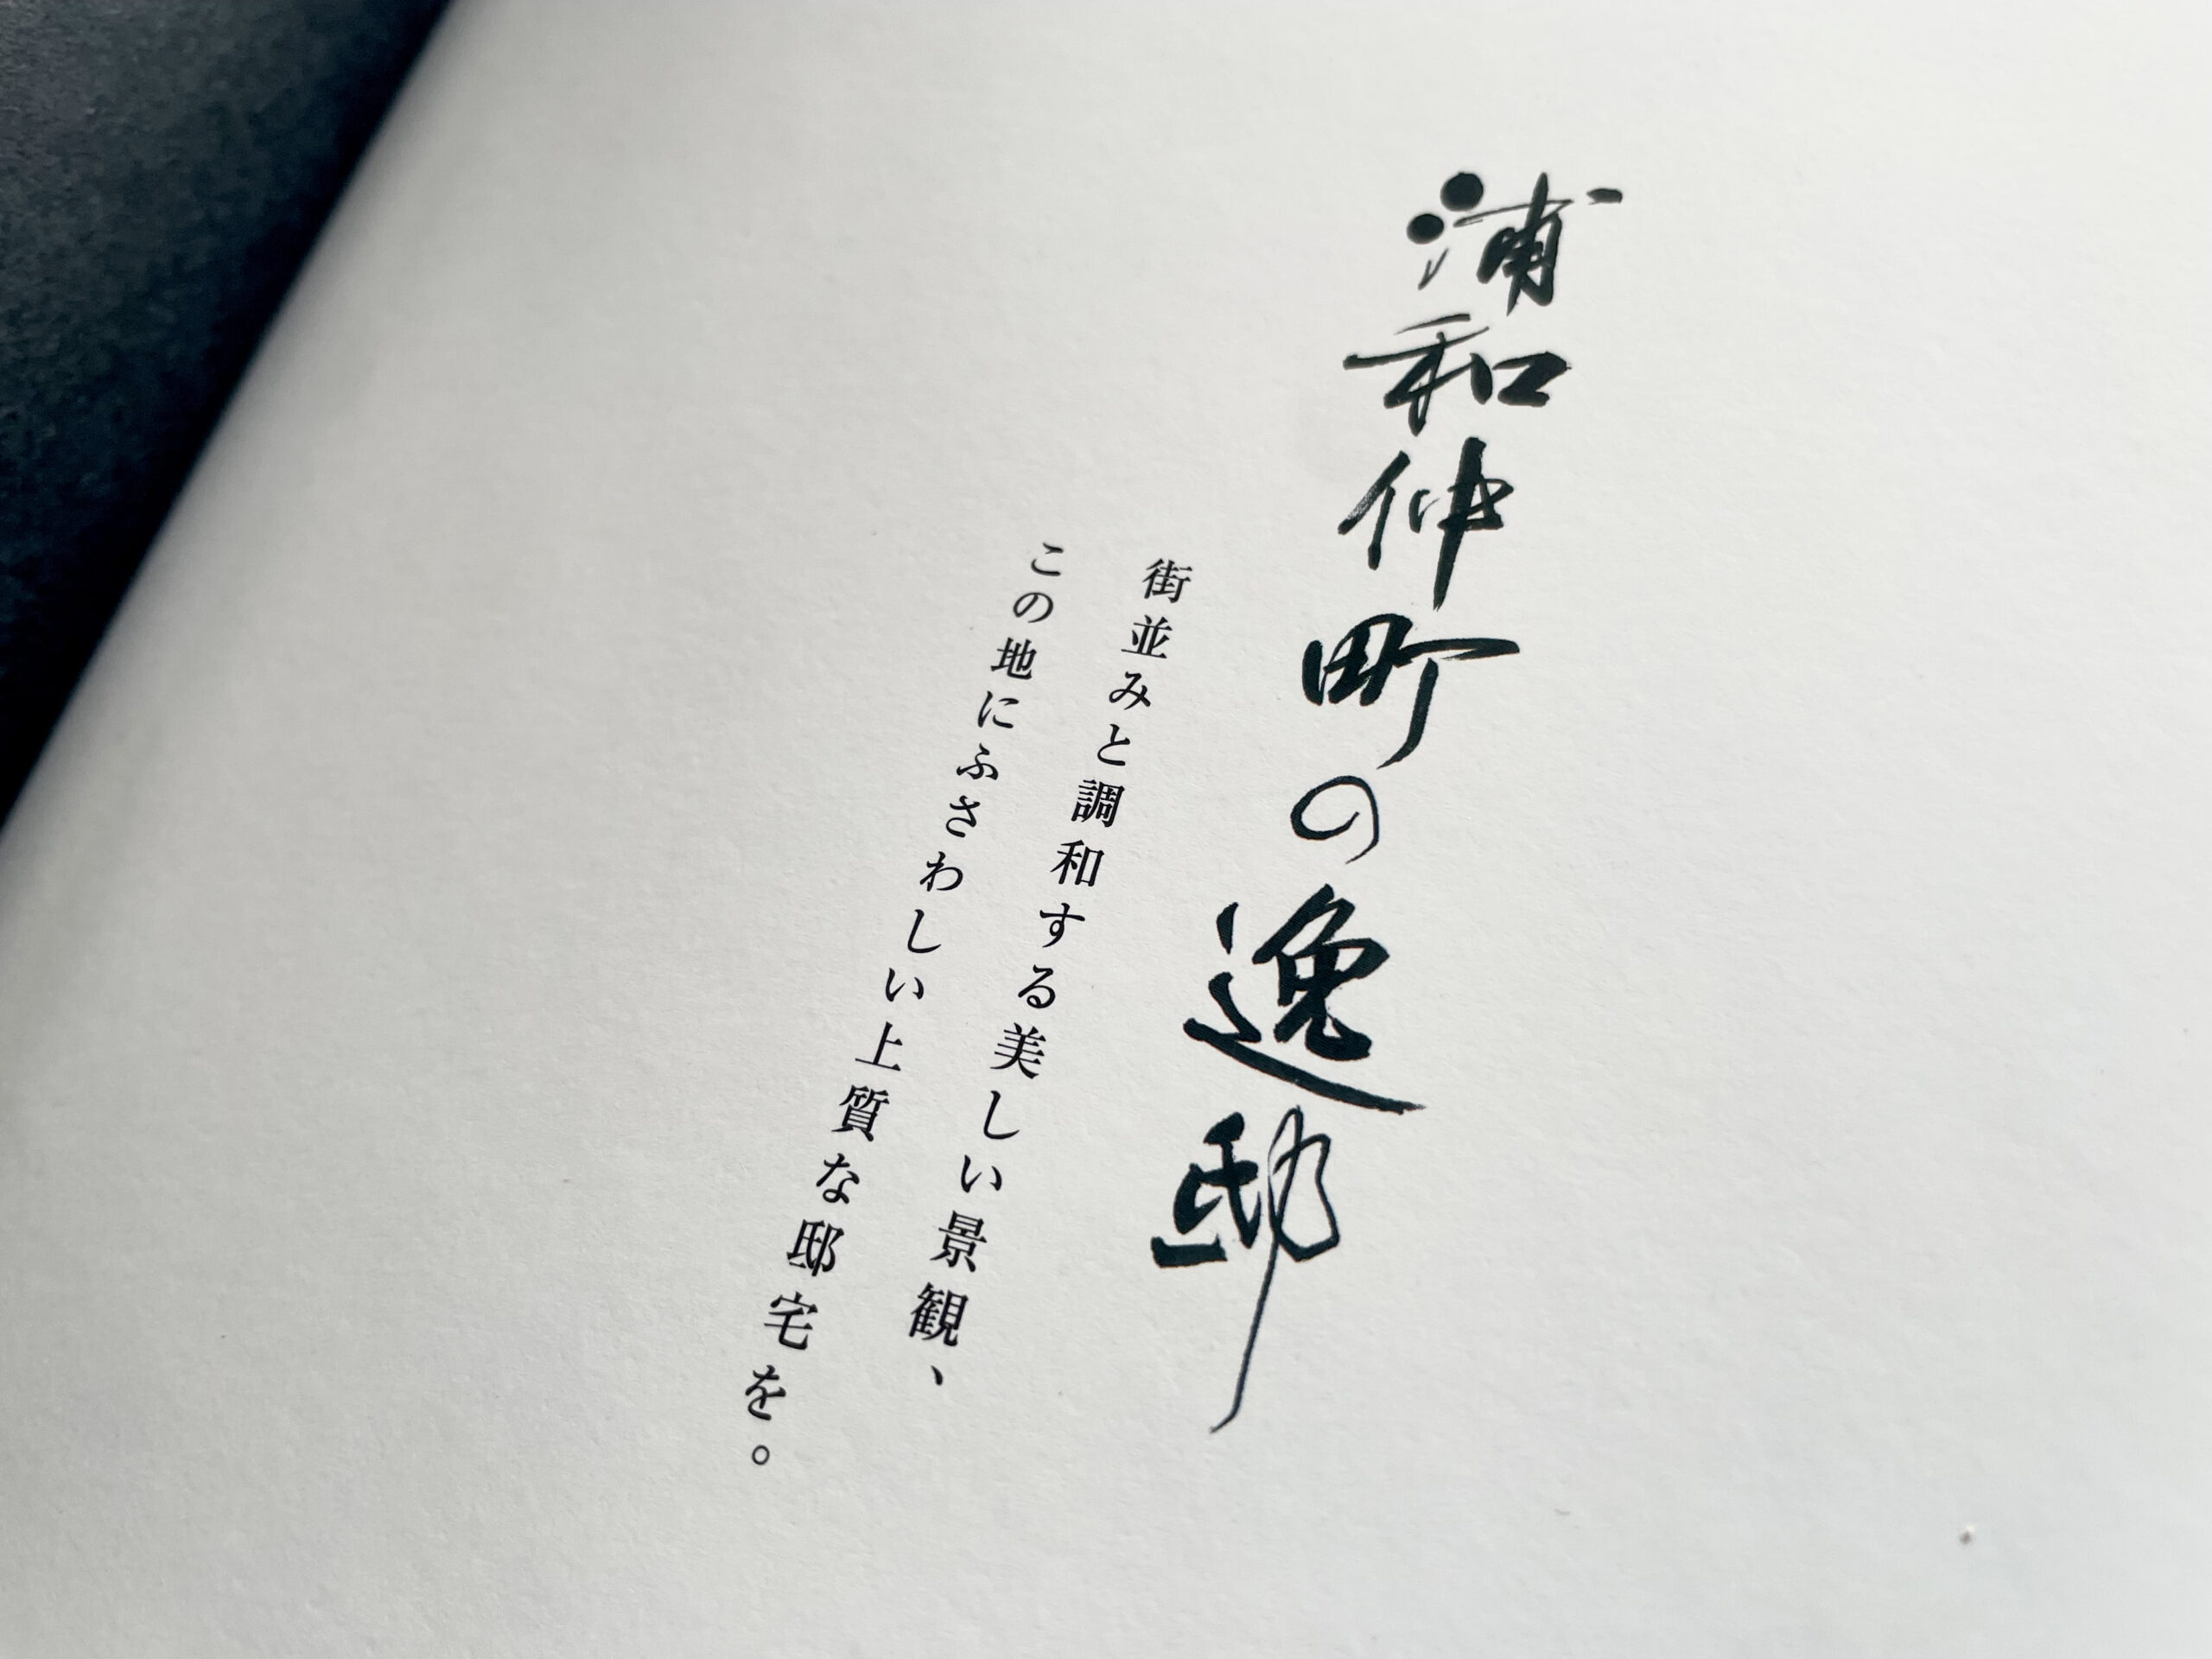 浦和仲町の逸邸
街並みと調和する美しい景観、
この地にふさわしい上質な邸宅を。